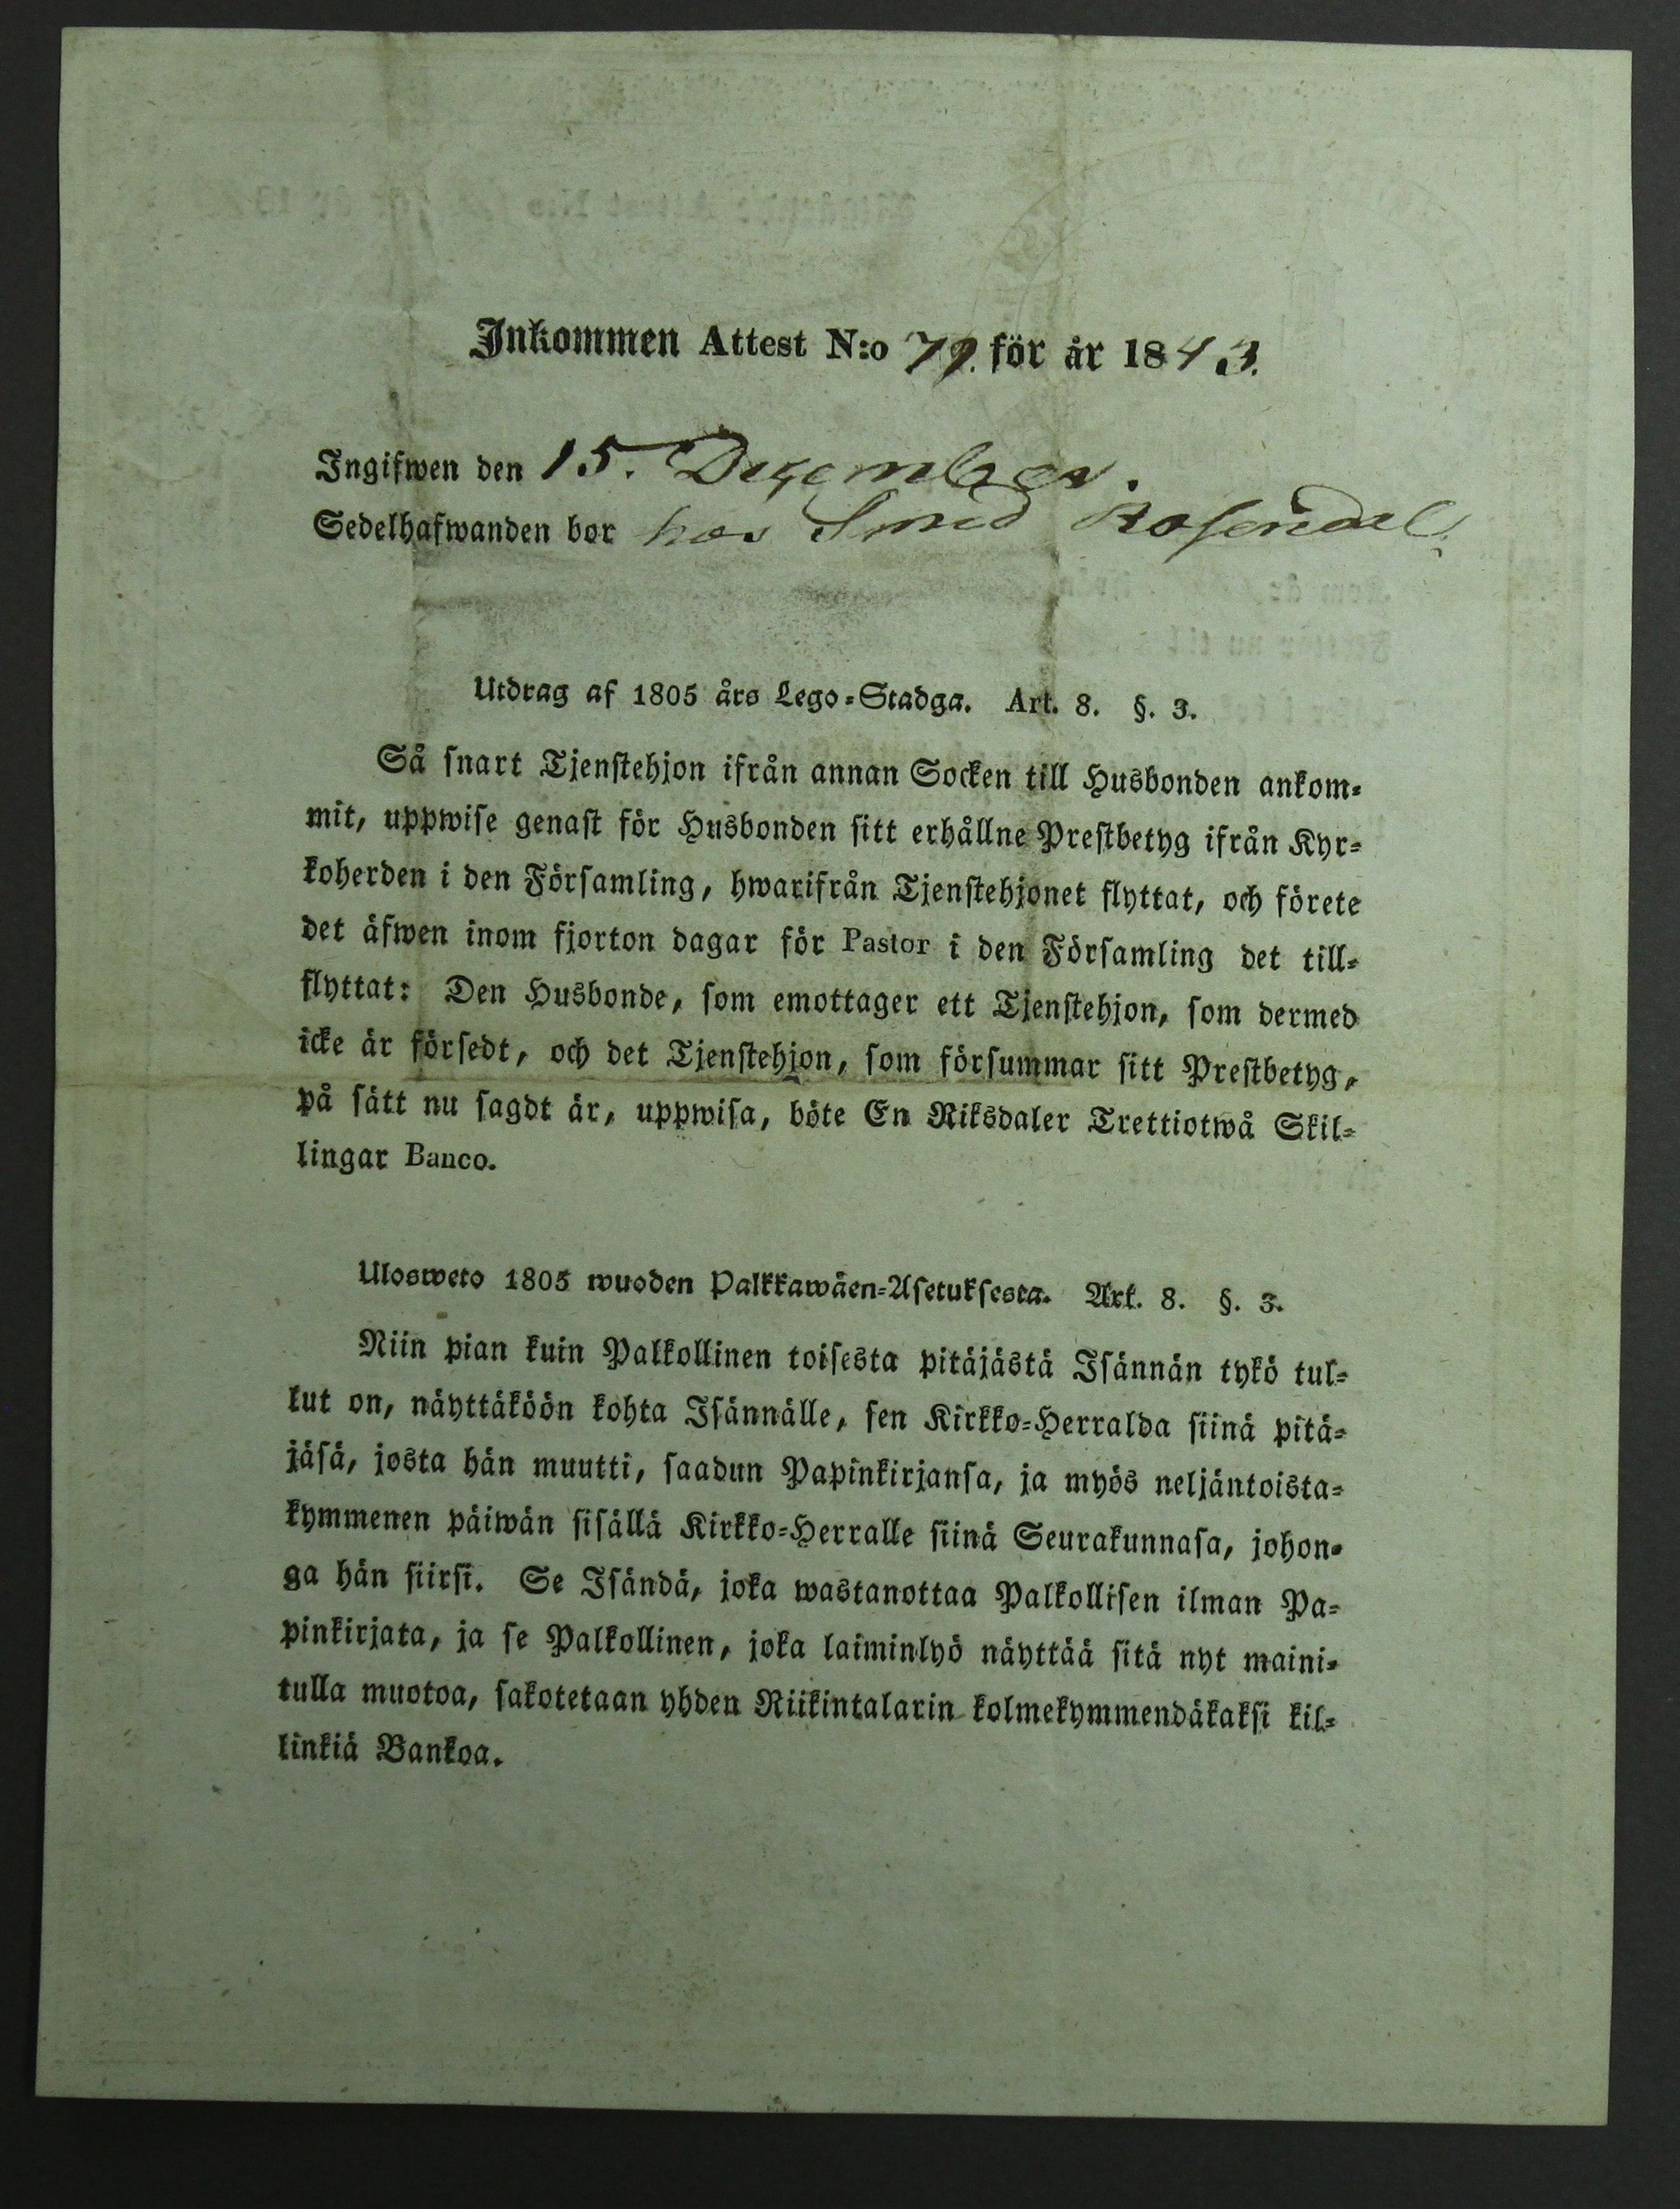 Inkommen Attest N:o 79. för år 1843.
Ingifwen den 15. December.
Sedelhafwanden bor hos Smed Rosendal
Utdrag af 1805 års Lego-Stadga. Art. 8. §. 3.
Så snart Tjenstehjon ifrån annan Socken till Husbonden ankom-
mit, uppwise genast för Husbonden sitt erhållne Prestbetyg ifrån Kyr-
koherden i den Församling, hwarifrån Tjenstehjonet flyttat, och förete
det äfwen inom fjorton dagar för Pastor i den Församling det till-
flyttat: Den Husbonde, som emottager ett Tjenstehjon, som dermed
icke är försedt, och det Tjenstehjon, som försummar sitt Prestbetyg,
på sätt nu sagdt är, uppwisa, böte En Riksdaler Trettiotwå Skil-
lingar Banco.
Ulosweto 1805 wuoden Palkkawäen-Asetuksesta. Art. 8. §. 3.
Niin pian kuin Palkollinen toisesta pitäjästä Isännän tykö tul-
lut on, näyttäköön kohta Isännälle, sen Kirkko-Herralda siinä pitä-
jäsä, josta hän muutti, saadun Papinkirjansa, ja myös neljäntoista-
kymmenen päiwän sisällä Kirkko-Herralle siinä Seurakunnasa, johon-
ga hän siirsi. Se Isändä, joka wastanottaa Palkollisen ilman Pa-
pinkirjata, ja se Palkollinen, joka laiminlyö näyttää sitä nyt maini-
tulla muotoa, sakotetaan yhden Riikintalarin kolmekymmendäkaksi kil-
linkiä Bankoa.